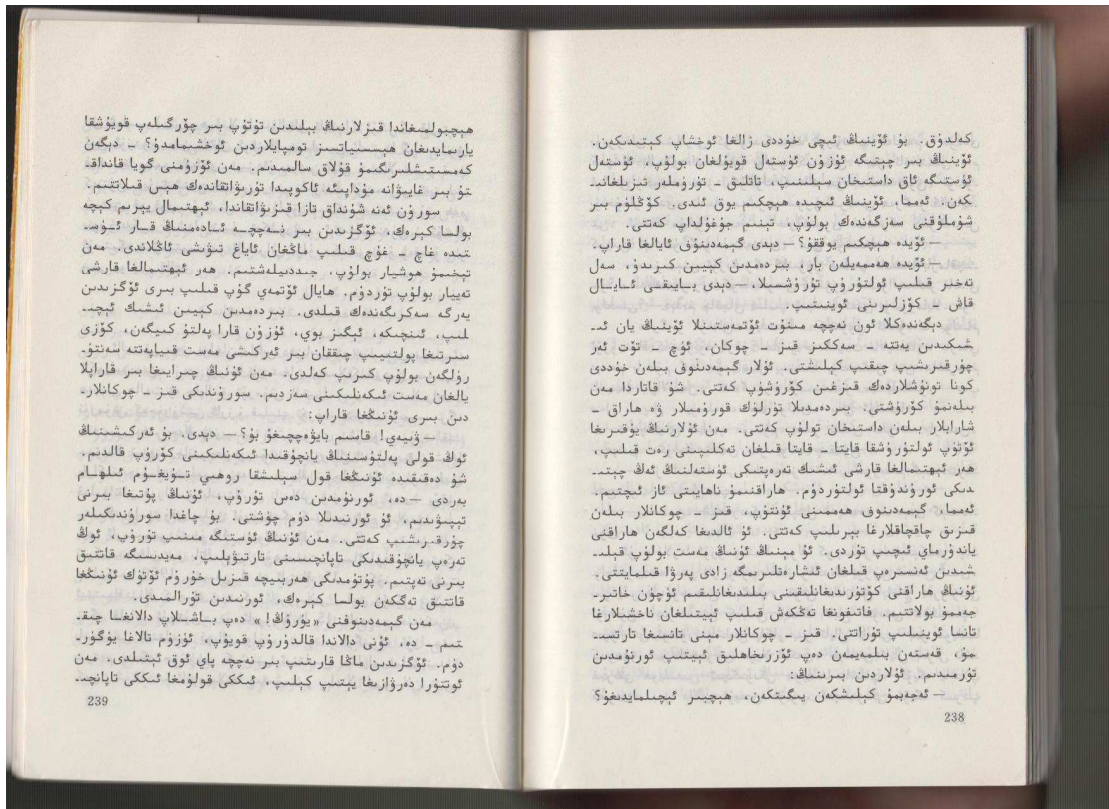 كەلدۇق. بۇ ئۆينىڭ ئىچى خۇددى زالغا ئوخشاپ كېتىدىكەن.
ئۆينىڭ بىر چېتىگە ئۇزۇن ئۈستەل قويۇلغان بولۇپ، ئۈستەل
ئۈستىگە ئاق داستىخان سېلىنىپ، تاتلىق ـ تۈرۈملەر تىزىلغانى‍ـ
كەن. ئەمما، ئۆينىڭ ئىچىدە ھېچكىم يوق ئىدى. كۆڭلۈم بىر
شۇملۇقنى سەزگەندەك بولۇپ، تېنىم جۇغۇلداپ كەتتى.
— ئۆيدە ھېچكىم يوققۇ؟ — دېدى گېمەدىنوف ئايالغا قاراپ.
— ئۆيدە ھەممەيلەن بار، بىردەمدىن كېيىن كىرىدۇ، سەل
تەخىر قىلىپ ئولتۇرۇپ تۇرۇشسىلا، — دېدى بايىقى ئايال
قاش ـ كۆزلىرىنى ئوينىتىپ.
دېگەندەكلا ئون نەچچە مىنۇت ئۆتمەستىنلا ئۆينىڭ يان ئى‍ـ
شىكىدىن يەتتە ـ سەككىز قىز ـ چوكان، ئۈچ ـ تۆت ئەر
چۇرقىرىشىپ چىقىپ كېلىشتى. ئۇلار گېمەدىنوف بىلەن خۇددى
كونا تونۇشلاردەك قىزغىن كۆرۈشۈپ كەتتى. شۇ قاتاردا مەن
بىلەنمۇ كۆرۈشتى. بىردەمدىلا تۈرلۈك قورۇمىلار ۋە ھاراق ـ
شارابلار بىلەن داستىخان تولۇپ كەتتى. مەن ئۇلارنىڭ يۇقىرىغا
ئۆتۈپ ئولتۇرۇشقا قايتا ـ قايتا قىلغان تەكلىپىنى رەت قىلىپ،
ھەر ئېھتىمالغا قارشى ئىشىك تەرەپتىكى ئۈستەلنىڭ ئەڭ چېتى‍ـ
دىكى ئورۇندۇقتا ئولتۇردۇم. ھاراقنىمۇ ناھايىتى ئاز ئىچتىم.
ئەمما، گېمەدىنوف ھەممىنى ئۇنتۇپ، قىز ـ چوكانلار بىلەن
قىزىق چاقچاقلارغا بېرىلىپ كەتتى. ئۇ ئالدىغا كەلگەن ھاراقنى
ياندۇرماي ئىچىپ تۇردى. ئۇ مېنىڭ ئۇنىڭ مەست بولۇپ قېلى‍ـ
شىدىن ئەنسىرەپ قىلغان ئىشارەتلىرىمگە زادى پەرۋا قىلمايتتى.
ئۇنىڭ ھاراقنى كۆتۈرىدىغانلىقىنى بىلىدىغانلىقىم ئۈچۈن خاتىر‍ـ
جەممۇ بولاتتىم. قاتىفونغا تەڭكەش قىلىپ ئېيتىلغان ناخشىلارغا
تانسا ئوينىلىپ تۇراتتى. قىز ـ چوكانلار مېنى تانسىغا تارتسى‍ـ
مۇ، قەستەن بىلمەيمەن دەپ ئۆزرىخاھلىق ئېيتىپ ئورنۇمدىن
تۇرمىدىم. ئۇلاردىن بىرىنىڭ:
— ئەجەبمۇ كېلىشكەن يىگىتكەن، ھېچبىر ئېچىلمايدىغۇ؟
238
ھېچبولمىغاندا قىزلارنىڭ بېلىدىن تۇتۇپ بىر چۆرگىلەپ قويۇشقا
يارىمايدىغان ھېسسىياتسىز تومپايلاردىن ئوخشىمامدۇ؟ ـ دېگەن
كەمسىتىشلىرىگىمۇ قۇلاق سالمىدىم. مەن ئۆزۈمنى گويا قانداق‍ـ
تۇ بىر غايىۋانە مۇداپىئە ئاكوپىدا تۇرىۋاتقاندەك ھېس قىلاتتىم.
سورۇن ئەنە شۇنداق تازا قىزىۋاتقاندا، ئېھتىمال يېرىم كېچە
بولسا كېرەك، ئۆگزىدىن بىر نەچچە ئادەمنىڭ قار ئۈس‍ـ
تىدە غاچ ـ غۇچ قىلىپ ماڭغان ئاياغ تىۋىشى ئاڭلاندى. مەن
تېخىمۇ ھوشيار بولۇپ، جىددىيلەشتىم. ھەر ئېھتىمالغا قارشى
تەييار بولۇپ تۇردۇم. ھايال ئۆتمەي گۈپ قىلىپ بىرى ئۆگزىدىن
يەرگە سەكرىگەندەك قىلدى. بىردەمدىن كېيىن ئىشىك ئېچى‍ـ
لىپ، ئىنچىكە، ئېگىز بوي، ئۇزۇن قارا پەلتۇ كىيگەن، كۆزى
سىرتىغا پولتىيىپ چىققان بىر ئەركىشى مەست قىياپەتتە سەنتۈ‍ـ
رۈلگەن بولۇپ كىرىپ كەلدى. مەن ئۇنىڭ چىرايىغا بىر قاراپلا
يالغان مەست ئىكەنلىكىنى سەزدىم. سورۇندىكى قىز ـ چوكانلار‍ـ
دىن بىرى ئۇنىڭغا قاراپ:
— ۋىيەي! قاسىم بايۋەچچىغۇ بۇ؟ — دېدى. بۇ ئەركىشىنىڭ
ئوڭ قولى پەلتۇسىنىڭ يانچۇقىدا ئىكەنلىكىنى كۆرۈپ قالدىم.
شۇ دەقىقىدە ئۇنىڭغا قول سېلىشقا روھىي تۇيغۇم ئىلھام
بەردى — دە، ئورنۇمدىن دەس تۇرۇپ، ئۇنىڭ پۇتىغا بىرنى
تېپىۋىدىم، ئۇ ئورنىدىلا دۈم چۈشتى. بۇ چاغدا سورۇندىكىلەر
چۇرقىرىشىپ كەتتى. مەن ئۇنىڭ ئۈستىگە مىنىپ تۇرۇپ، ئوڭ
تەرەپ يانچۇقىدىكى تاپانچىسىنى تارتىۋېلىپ، مەيدىسىگە قاتتىق
بىرنى تەپتىم. پۇتۇمدىكى ھەربىيچە قىزىل خۇرۇم ئۆتۈك ئۇنىڭغا
قاتتىق تەگكەن بولسا كېرەك، ئورنىدىن تۇرالمىدى.
مەن گېمەدىنوفنى «يۈرۈڭ!» دەپ باشلاپ دالانغا چىق‍ـ
تىم ـ دە، ئۇنى دالاندا قالدۇرۇپ قويۇپ، ئۆزۈم تالاغا يۈگۈر‍ـ
دۈم. ئۆگزىدىن ماڭا قارىتىپ بىر نەچچە پاي ئوق ئېتىلدى. مەن
ئوتتۇرا دەرۋازىغا يېتىپ كېلىپ، ئىككى قولۇمغا ئىككى تاپانچى‍ـ
239